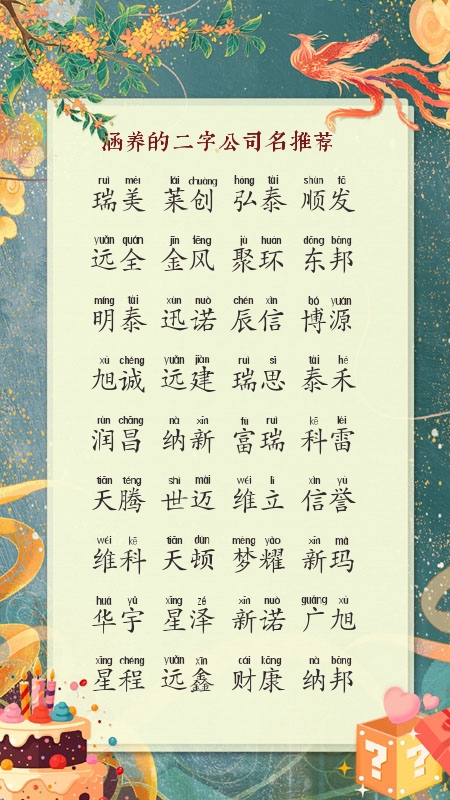 涵养的二字公司名推荐
ruì měi lái chuàng hóng tài shùn fā
瑞美 莱创 弘泰 顺发
yuǎn quán jīn fēng jù huán dōng bāng
远全 金风 聚环 东邦
míng tài xùn nuò chén xìn bó yuán
明泰 迅诺 辰信 博源
xù chéng yuǎn jiàn ruì sī tài hé
旭诚 远建 瑞思 泰禾
rùn chāng nà xīn fù ruì kē léi
润昌 纳新 富瑞 科雷
tiān téng shì mài wéi lì xìn yù
天腾 世迈 维立 信誉
wéi kē tiān dùn mèng yào xīn mǎ
维科 天顿 梦耀 新玛
huá yǔ xīng zé xīn nuò guǎng xù
华宇 星泽 新诺 广旭
xīng chéng yuǎn xīn cái kāng nà bāng
星程 远鑫 财康 纳邦
? ?